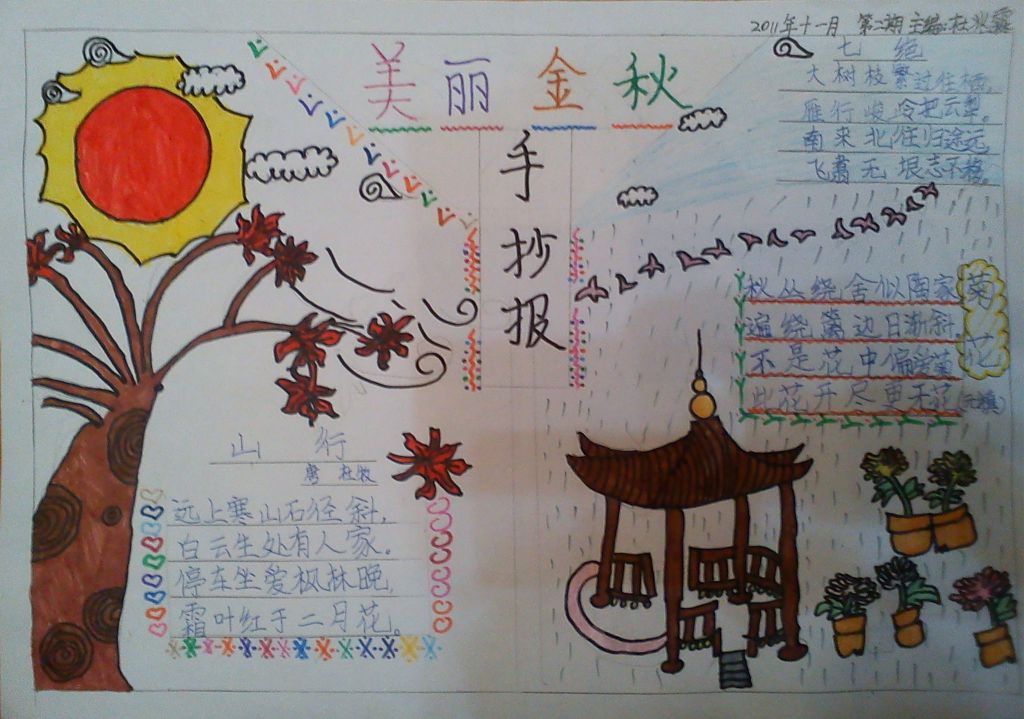 2011年十一月 第二期 主编:杜
美丽金秋
手抄报
七绝
大树枝繁过往栖,
雁行峻冷把云犁。
南来北往归途远
飞肃无垠志不移。
菊花
秋丛绕舍似陶家
遍绕篱边日渐斜.
不是花中偏爱菊
此花开尽更无花(元稹)
山行
唐 杜牧
远上寒山石径斜,
白云生处有人家。
停车坐爱枫林晚,
霜叶红于二月花。